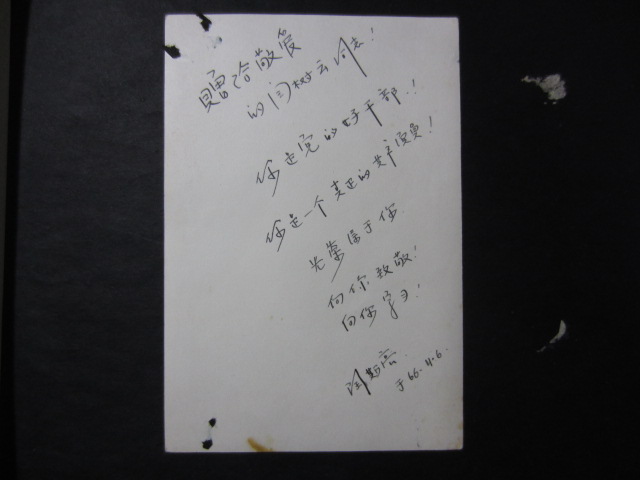 赠给敬爱
的闫树云同志!
你是党的好干部!
你是一个真正的共产党员!
光荣属于你
向你致敬!
向你学习!
闫
于66.11.6.